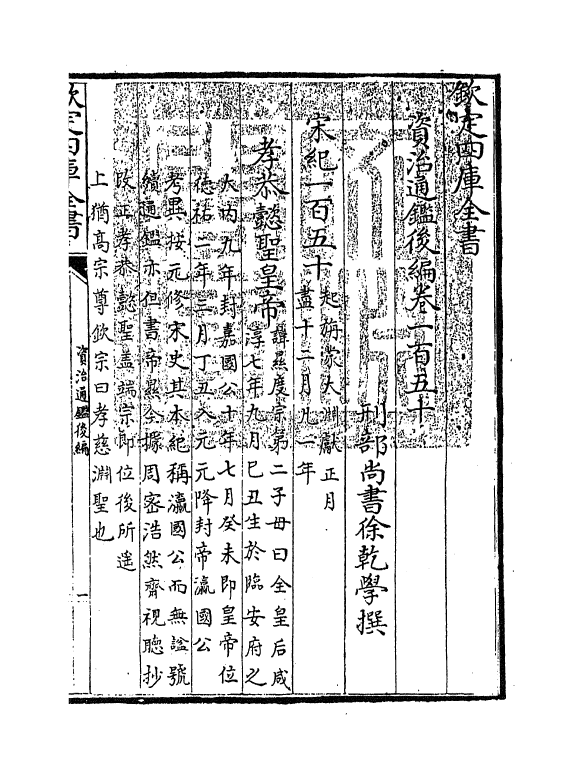 欽定四庫全書
資治通鑑後編卷一百五十
刑部尚書徐乾學撰
宋紀一百五十
起旃蒙大淵獻正月
盡十二月凡一年
孝恭懿聖皇帝
諱㬎度宗第二子母曰全皇后咸
淳七年九月己丑生於臨安府之
大内九年封嘉國公十年七月癸未即皇帝位
德祐二年三月丁丑入元元降封帝瀛國公
考異按元修宋史其本紀稱瀛國公而無諡號
續通鑑亦但書帝㬎今據周密浩然齋視聽抄
改正孝恭懿聖盖端宗即位後所遥
上猶髙宗尊欽宗曰孝慈淵聖也
欽定四庫全書
資治通鑑後編
一